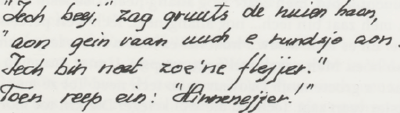 "Iech beej," zag gruuts de nuien haan,
"aon gein vaan uuch e rundsje aon.
Iech bin neet zoe'ne flejjer."
Toen reep ein: "Hinneneijer!"